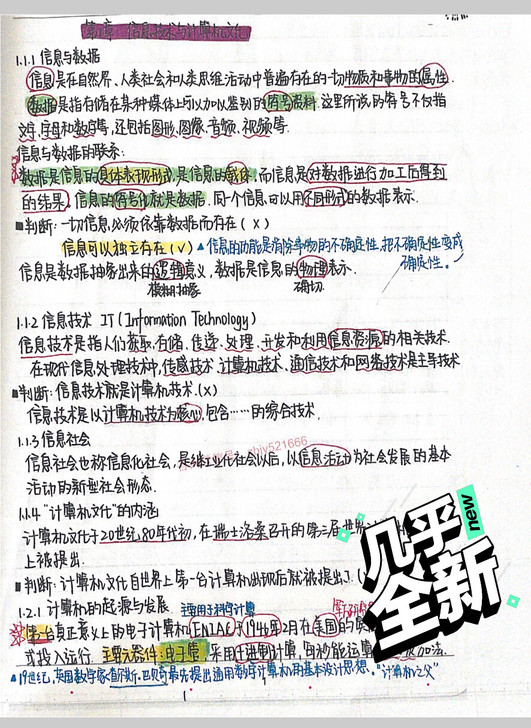 第一章 信息技术与计算机文化
1.1.1 信息与数据
信息是在自然界、人类社会和人类思维活动中普遍存在的一切物质和事物的属性.
数据是指存储在某种媒体上可以加以鉴别的符号资料.这里所说的符号不仅指
文字,字母和数字等,还包括图形,图像,音频,视频等.
信息与数据的联系:
数据是信息的具体表现形式,是信息的载体,而信息是对数据进行加工后得到
的结果,信息的符号化就是数据.同一个信息可以用不同形式的数据表示.
■判断:一切信息必须依靠数据而存在(×)
信息可以独立存在(√) ▲信息的功能是消除事物的不确定性,把不确定性变成
确定性。
信息是数据抽象出来的逻辑意义,数据是信息的物理表示.
模糊抽象 确切
1.1.2 信息技术 IT(Information Technology)
信息技术是指人们获取.存储.传递.处理.开发和利用信息资源的相关技术.
在现代信息处理技术中,传感技术.计算机技术.通信技术和网络技术是主导技术
■判断:信息技术就是计算机技术.(×)
信息技术是以计算机技术为核心,包含……的综合技术.
1.1.3 信息社会
521666
信息社会也称信息化社会,是继工业化社会以后,以信息活动为社会发展的基本
活动的新型社会形态.
1.1.4 “计算机文化”的内涵
计算机文化于20世纪80年代初,在瑞士洛桑召开的第三届世界
上被提出.
■判断:计算机文化自世界上第一台计算机出现后就被提出了.(
1.2.1 计算机的起源与发展 主要用于科学计算
第一台真正意义上的电子计算机ENIAC于1946年2月在美国的
式投入运行.主要元器件:电子管,采用十进制计算,每秒能运算 加法.
▲19世纪,英国数学家查尔斯.巴贝奇最先提出通用数字计算机的基本设计思想.“计算机之父”
1
几乎
全新
new